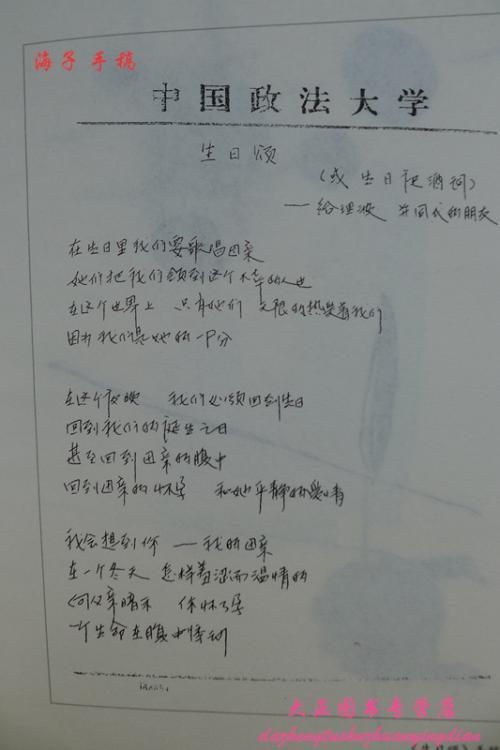 海子 手稿
中国政法大学
生日颂
（或 生日祝酒词）
——给理波 并同代的朋友
在生日里我们要歌唱母亲
她们把我们领到这个不幸的人世
在这个世界上 只有她们 无限的热爱着我们
因为我们是她的一部分
在这个夜晚 我们必须回到生日
回到我们的诞生之日
甚至回到母亲的腹中
回到母亲的怀孕 和她平静的爱情
我会想到你 ——我的母亲
在一个冬天 怎样羞涩而温情的
向父亲暗示 你怀了孕
一个生命在腹中悸动
大正图书专营店
dazhengtushuzhuanyingdian